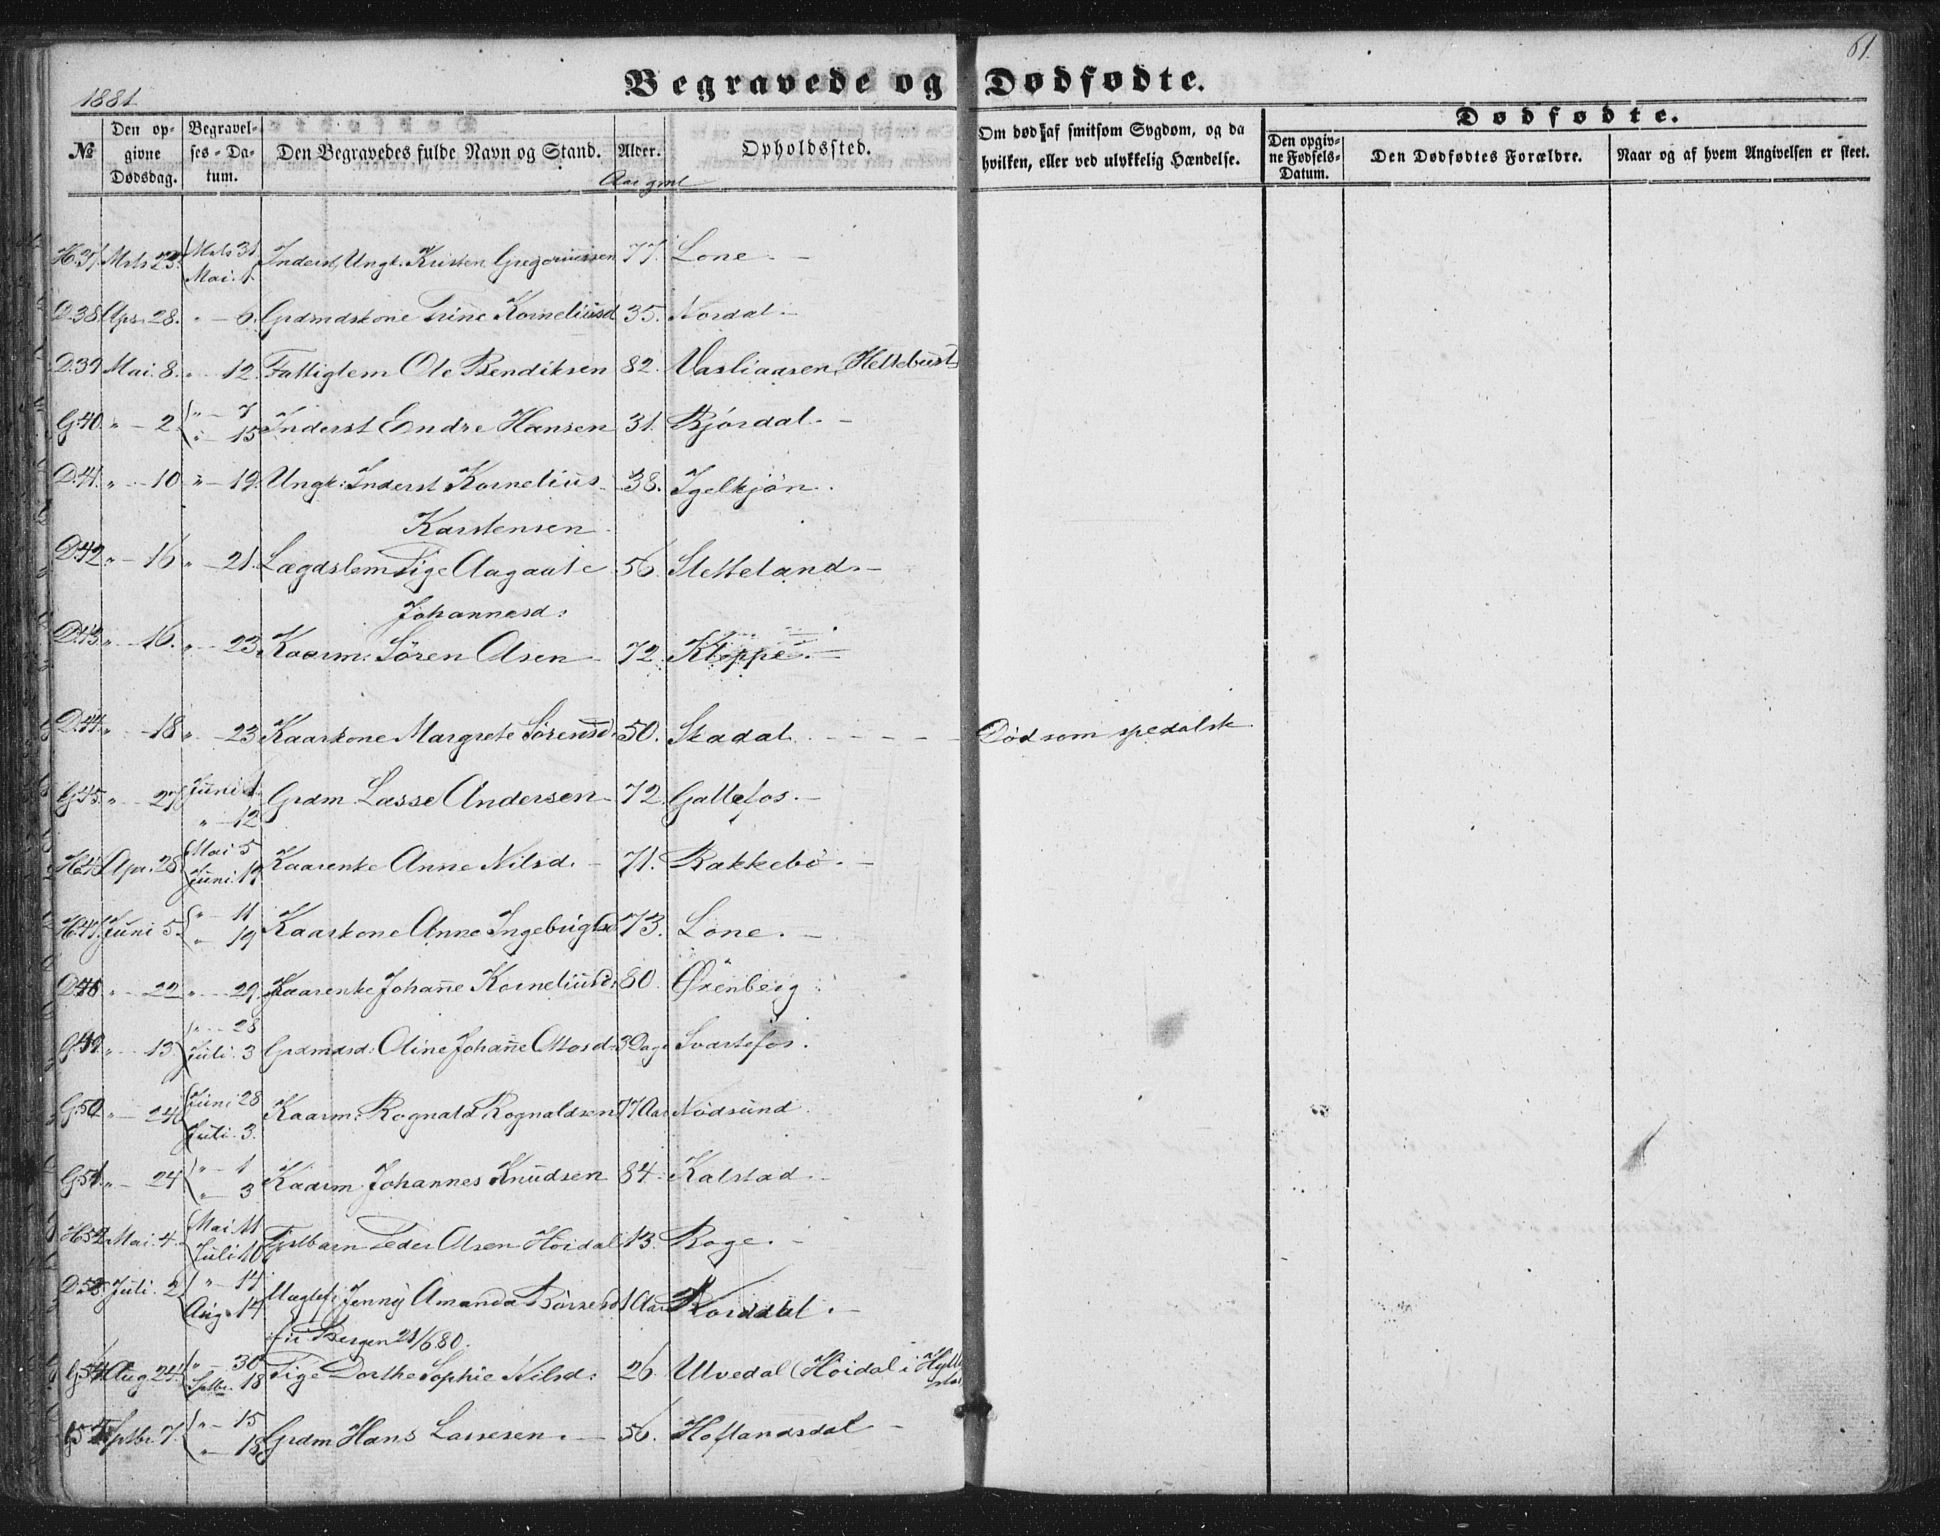 61.
1881.
Begravede og Dødfødte.
Dødfødte.
№
Den opgivne Dødsdag.
Begravelses-Datum.
Den Begravedes fulde Navn og Stand.
Alder.
Opholdssted.
Om død af smitsom Sygdom, og da hvilken, eller ved ulykkelig Hændelse.
Den opgivne Fødsels-Datum.
Den Dødfødtes Forældre.
Naar og af hvem Angivelsen er skeet.
Aar gml
H.37. Mrts 23. Mrts 31. Mai. 1. Inderst, Ungk. Kristen Gregoriussen 77. Lone. -
D.38. Apr. 28. " - 6. Grdmdskone Trine Korneliusd 35. Nordal. -
D.39 Mai. 8. " - 12. Fattiglem Ole Bendiksen 82. Vasliaasen,
G.40. " - 2. " - 7 " - 15 Inderst Endre Hansen 31. Bjórdal. -
D.41. " - 10 " - 19. Ungk: Inderst Kornelius 38. Igelkjøn.
Karstensen
D.42 " - 16 " - 21. Lægdslem Pige Aagaate 56. Sletteland. -
Johannesd:
D.43. " - 16. " - 23. Kaarm: Sören Olsen 72. Kleppe. -
D.44. " - 18 " - 23 Kaarkone Margrete Sörensd. 50. Skadal. - - - - - Död som spedalsk
G.45. " - 27 Juni 1. " - 12 Grdm Lasse Andersen 72. Gallefos. -
H.46 Apr. 28. Mai 5 Juni. 19. Kaarenke Anne Nilsd. - 71. Bakkebö. -
H.47. Juni 5. " - 11 " - 19 Kaarkone Anne Ingebrigtsd 73. Lone. -
D.48. " - 22 " - 29. Kaarenke Johanne Korneliusd: 80. Øxenberg.
G.49. " - 13. " - 28 Juli. 3 Grdmdsd: Oline Johanne Ottosd. 3 Dage Svartefos.
G.50 " - 24 Juni 28 Juli. 3. Kaarm: Rognald Rognaldsen 77 Aar Nödsund.
G.51. " - 24 " - 1 " - 3 Kaarm Johannes Knudsen 84. Kalstad. -
H.52. Mai. 4. Mai. 11 Juli. 10 Peder Olsen Höidal 13. Boge. -
D.53. Juli. 2. " - 17 Aug. 14 Jenny Amanda 1 Aar Rorddal. -
Bergen 21/6 80.
G.54 Aug 24. " - 30 Sptbr. 18 Pige Dorthe Sophie Nilsd: 26. Ulvedal (Höidal i
55 Sptbr. 7. " - 15 " - 18 Grdm Hans Lassesen. - 56. Hoflandsdal -